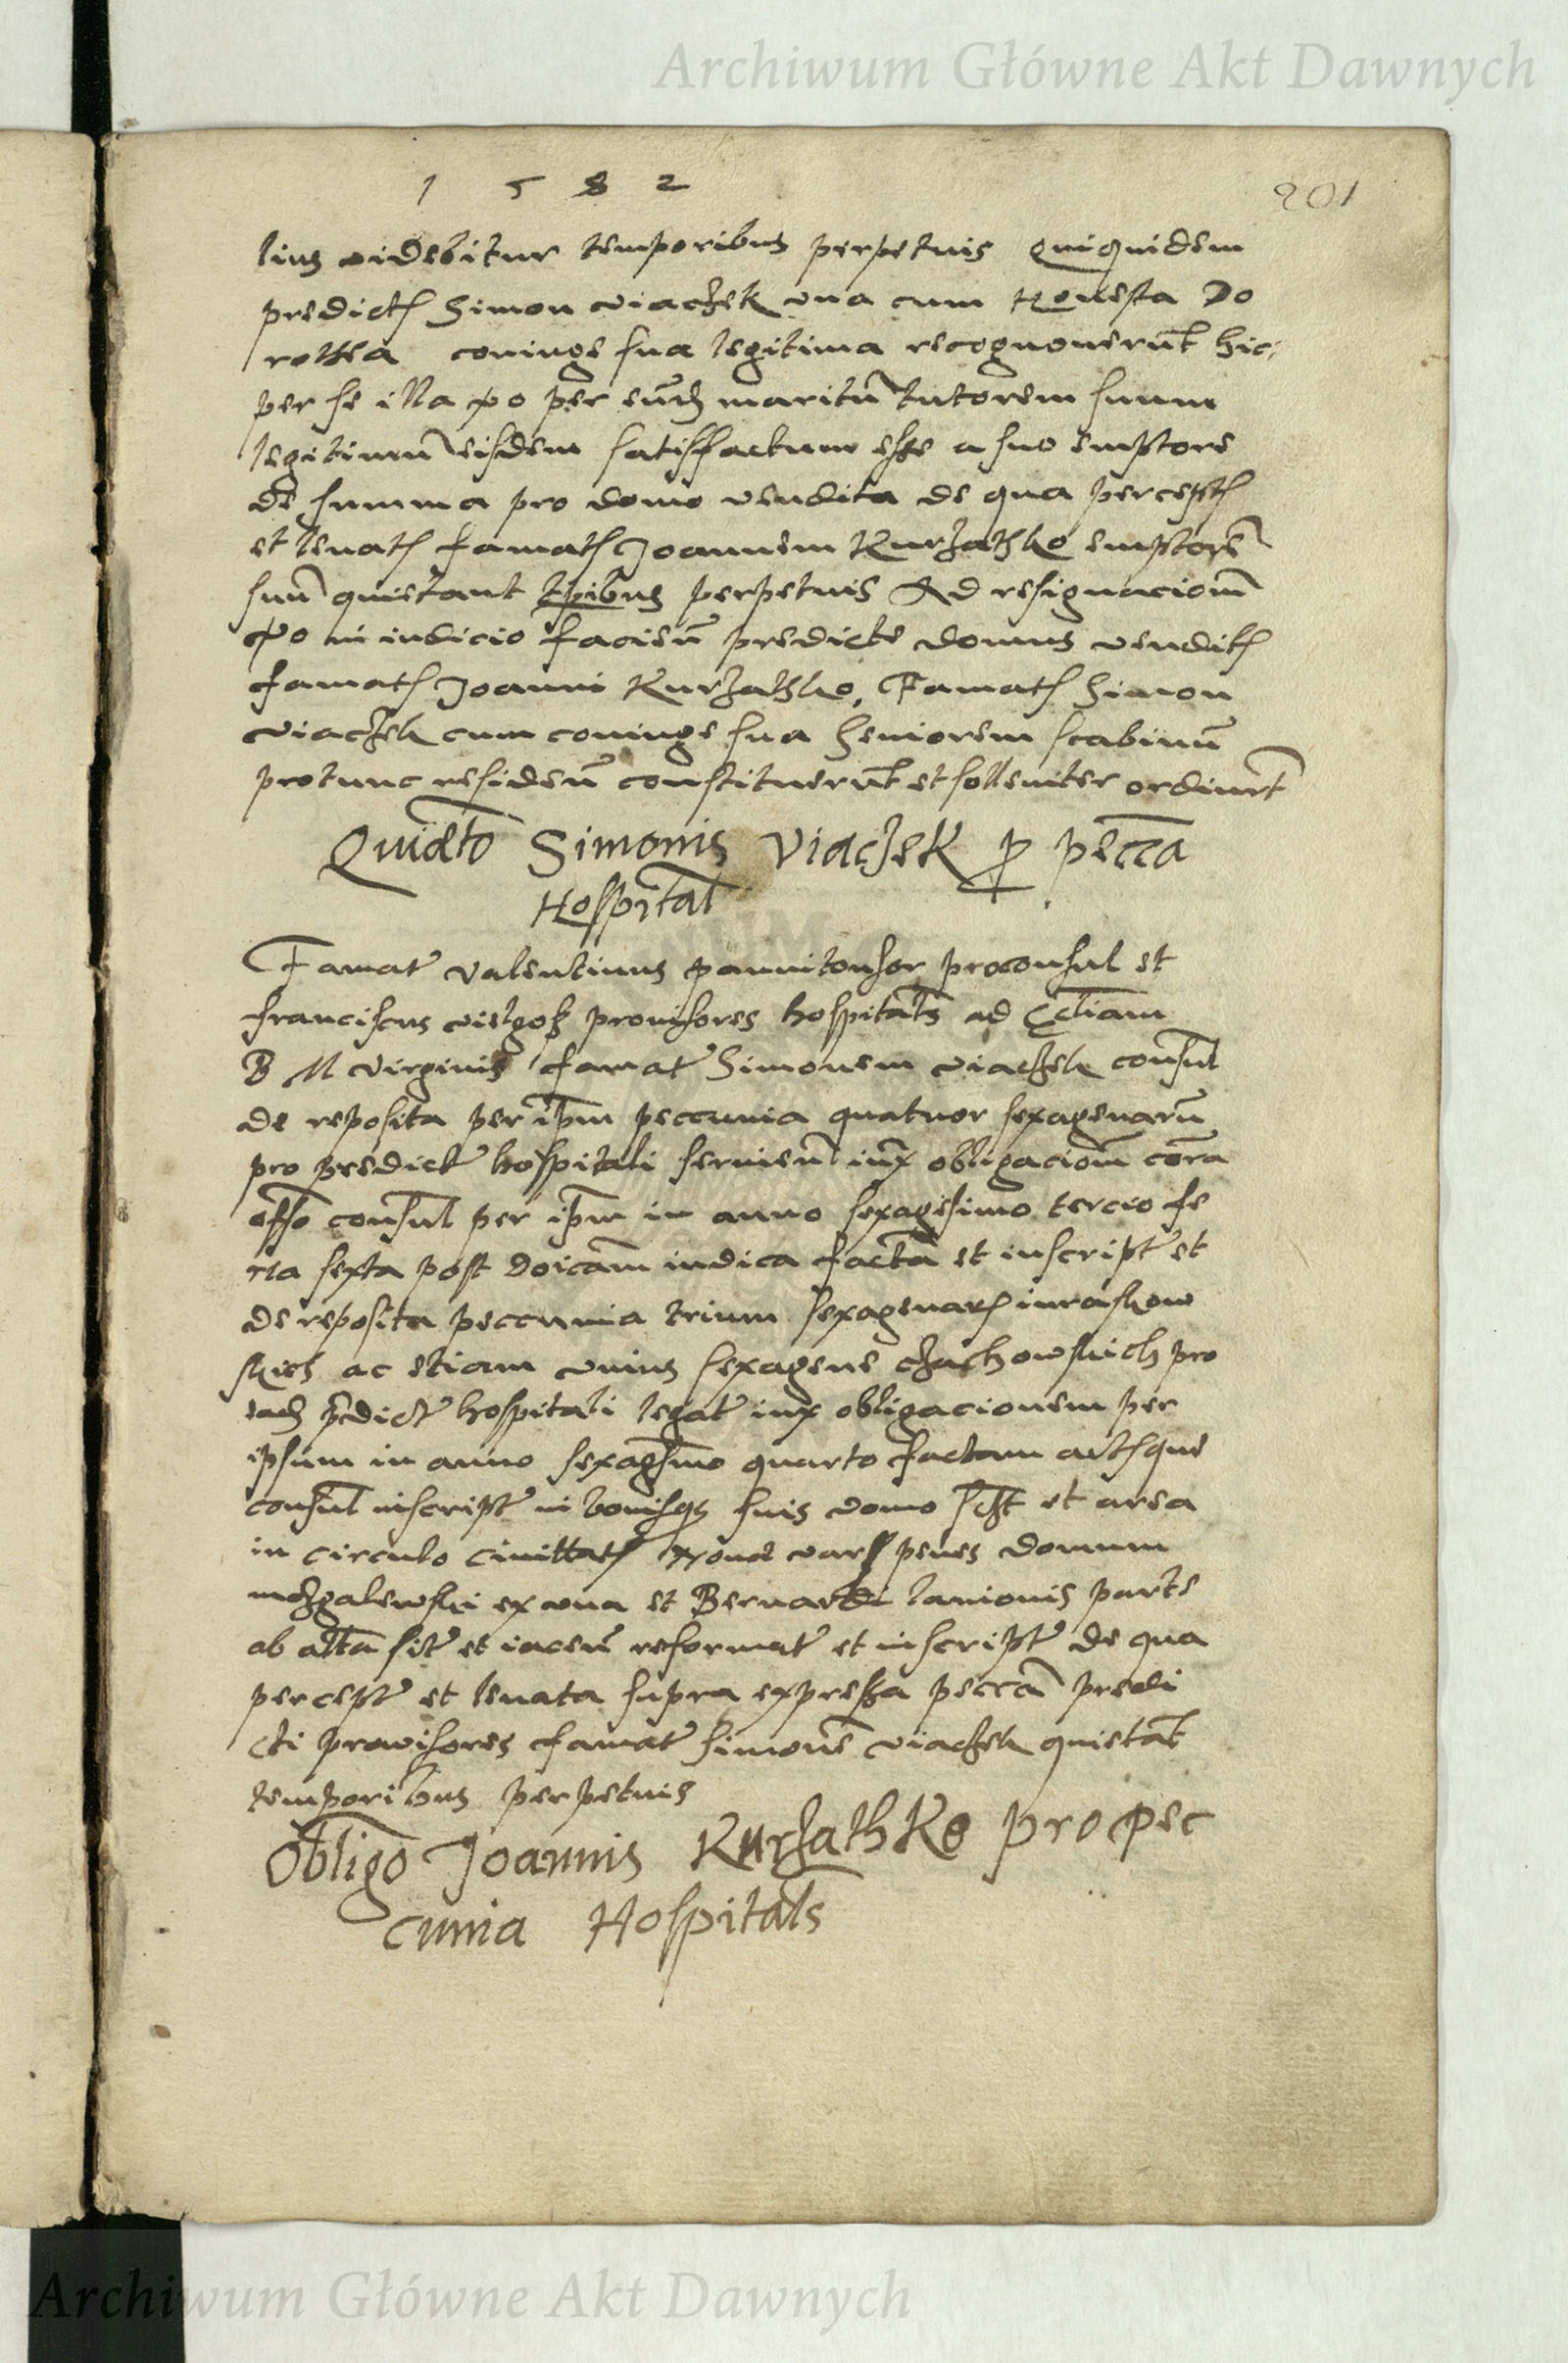 Archiwum Główne Akt Dawnych
1 5 8 2
201
lius videbitur temporibus perpetuis Quiquidem
predict Simon viaczek vna cum Honesta Do
rothea coniuge sua legitima recognouerut hic
per se illa vo per eud maritu tutorem suum
legitimu eisdem satisfactum esse a suo emptore
de summa pro domo vendita de qua percept
et leuat famat Joannem Kurzathko emptore
suu quietant tpibus perpetuis Ad resignaciom
vo in iudicio facien predicte domus vendit
famat Joanni Kurzathko, Famat Simon
viaczek cum coniuge sua Seniorem scabinu
protunc residen constituerut et solleniter ordinrt
Quiato Simonis Viaczek p pecca
Hospital
Famat valentinus pannitonsor proconsul et
franciscus vielgosz prouisores hospitals ad Ecliam
B M virginis famat Simonem viaczek consul
de reposita per ipm peccunia quatuor sexagenaru
pro predict hospitali seruien iux obligaciom cora
offo consul per ipm in anno sexagesimo tercio fe
ria sexta post doicam iudica facta et inscript et
de reposita peccunia trium sexagenar
ac etiam vnius sexagene pro
pdict hospitali legat iux obligacionem per
ipsum in anno sexagsimo quarto factam actisque
consul inscript in bonisqs suis domo et area
in circulo ciuittat penes domum
ex vna et Bernardi lanionis parte
ab alta sit et iacen reformat et inscript de qua
percept et leuata supra expressa pecca predi
cti prouisores famat simone viaczek quietat
temporibus perpetuis
Obligo Joannis Kurzathko pro pec
cunia Hospitals
Archiwum Główne Akt Dawnych